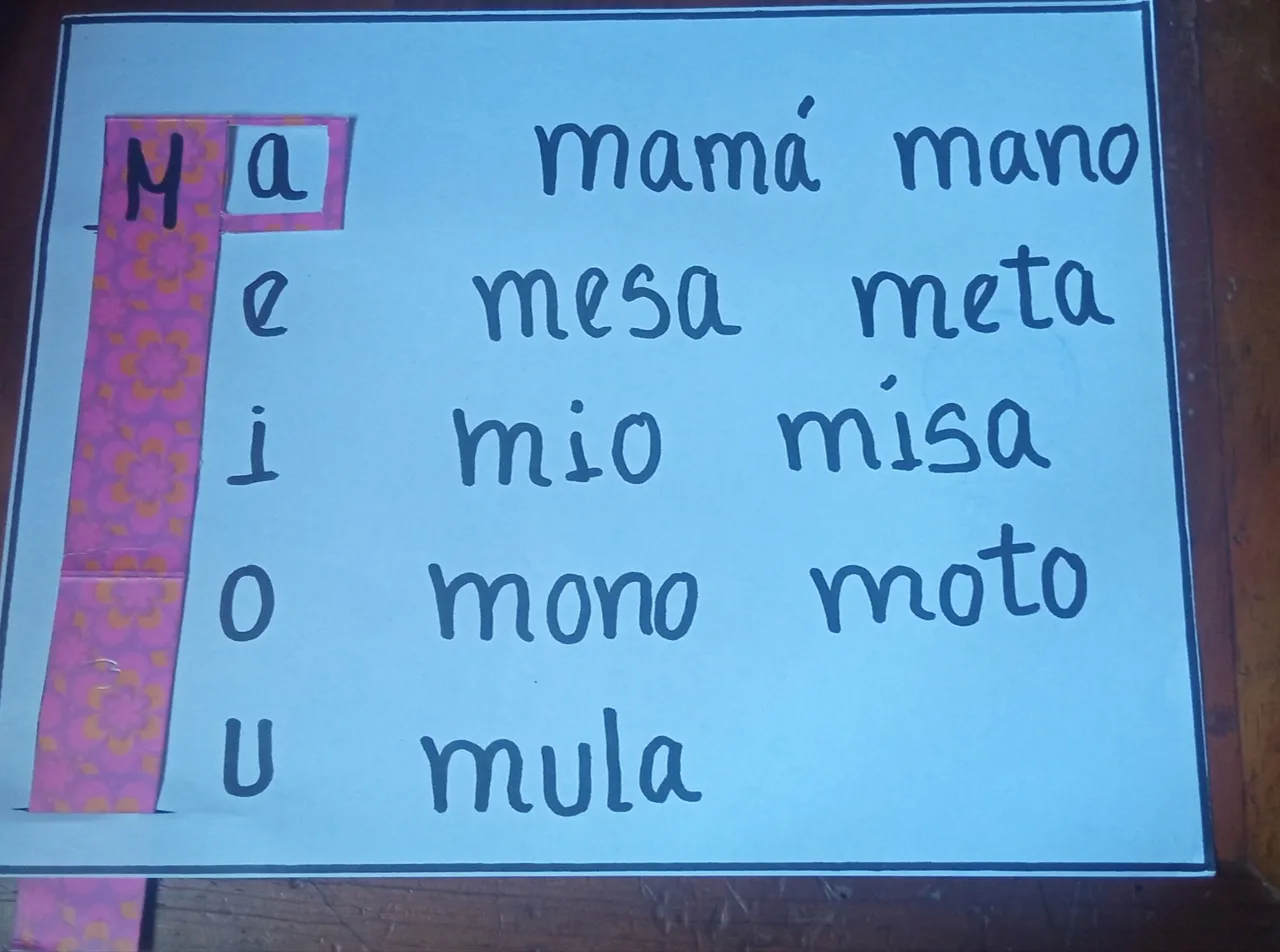 M a mamá mano
e mesa meta
i mio misa
o mono moto
u mula